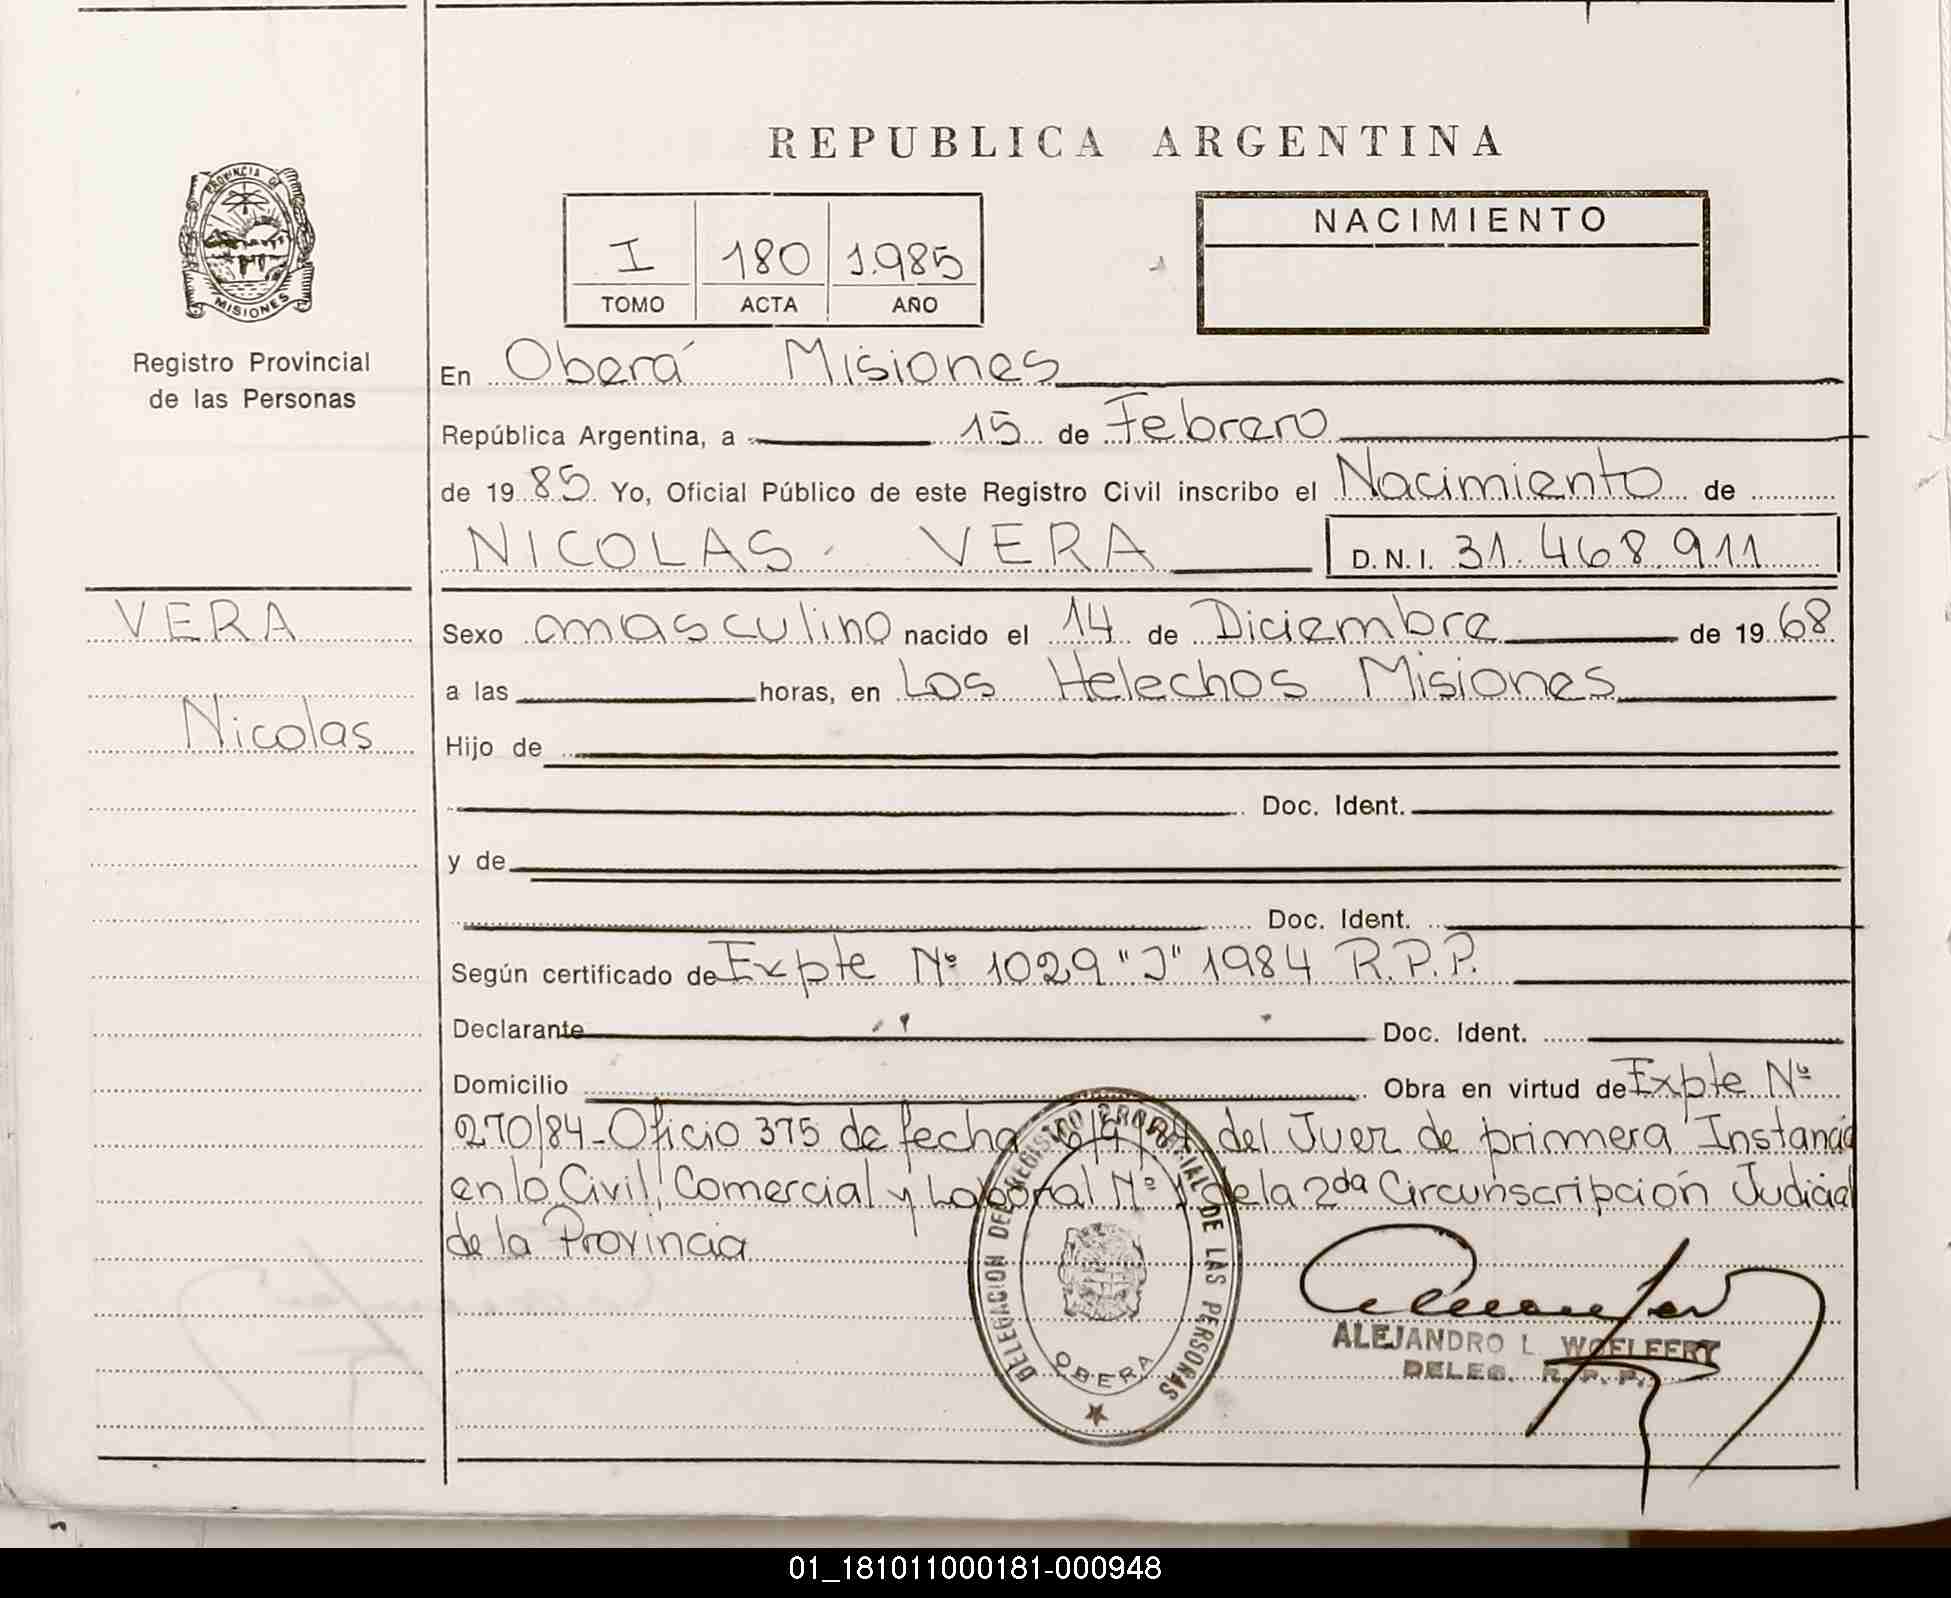 REPUBLICA ARGENTINA
PROVINCIA DE
MISIONES
Registro Provincial
de las Personas
I 180 1.985
TOMO ACTA AÑO
NACIMIENTO
En Oberá Misiones
República Argentina, a 15 de Febrero
de 19 85 Yo, Oficial Público de este Registro Civil inscribo el Nacimiento de
NICOLAS VERA D.N.I. 31.468.911
VERA
Nicolas
Sexo masculino nacido el 14 de Diciembre de 19 68
a las horas, en Los Helechos Misiones
Hijo de
Doc. Ident.
y de
Doc. Ident.
Según certificado de Expte Nº 1029 "J" 1984 R.P.P.
Declarante Doc. Ident.
Domicilio Obra en virtud de Expte Nº
270/84-Oficio 375 de fecha del Juez de primera Instancia
en lo Civil, Comercial y Laboral Nº de la 2da Circunscripción Judicial
de la Provincia
DELEGACION DEL REGISTRO PROVINCIAL DE LAS PERSONAS
OBERA
ALEJANDRO L. WOELFERT
DELEG. R. P. P.
01_181011000181-000948